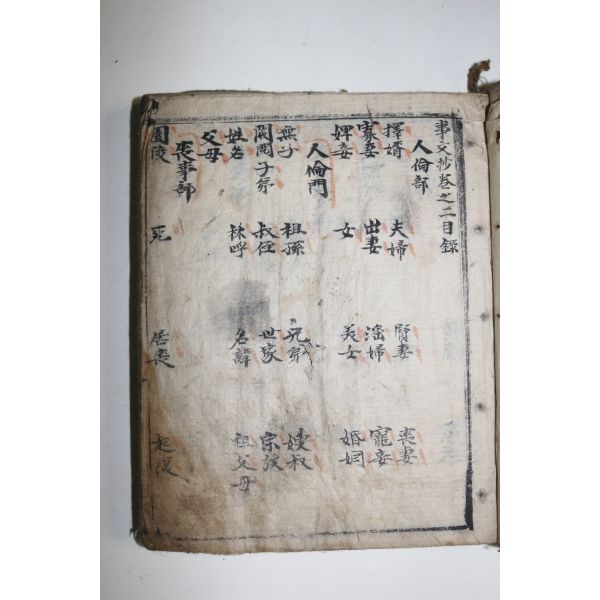 事文抄卷之二目録
人倫部
擇婿 夫婦 賢妻 喪妻
寡妻 出妻 淫婦 寵妾
婢妾 女 美女 婚姻
人倫門
無子 祖孫 兄弟 嫂叔
叔侄 世家 宗族
姓名 称呼 名諱 祖父母
父母
喪事部
園陵 死 居喪 起復